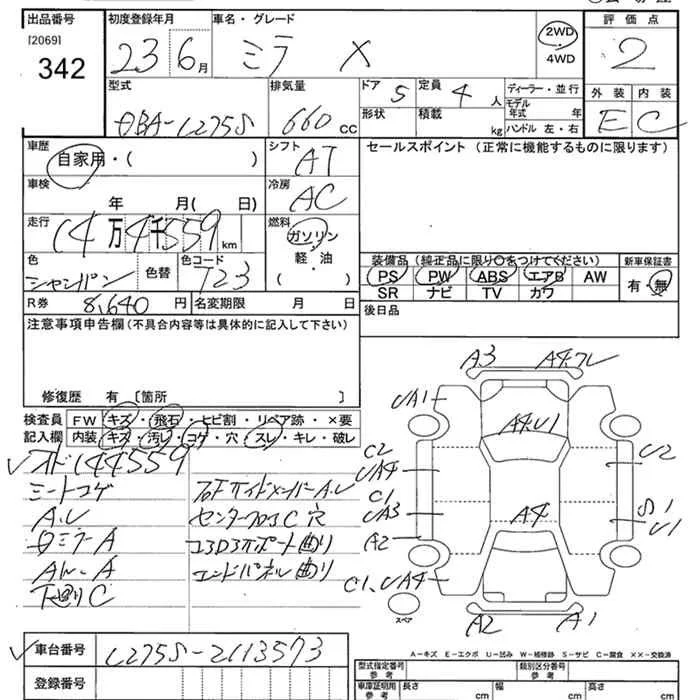 出品番号 初度登録年月 車名・グレード 評価点
[2069]
342
23 6月 ミラ X 2WD 4WD 2
型式 排気量 ドア 5 定員 4人 ディーラー・並行 外装 内装
モデル年式 年
形状 積載 kg ハンドル 左・右
DBA-L275S 660 cc E C
車歴 シフト セールスポイント (正常に機能するものに限ります)
自家用・( ) AT
車検 冷房
年 月( 日) AC
走行 燃料
14万4千559km ガソリン
軽・油
( )
色 色替 色コード 装備品(純正品に限り○をつけてください) 新車保証書
シャンパン T23 PS PW ABS エアB AW 有・無
SR ナビ TV カワ
R券 8,640円 名変期限 月 日 後日品
注意事項申告欄(不具合内容等は具体的に記入して下さい)
修復歴 有 [箇所 ]
検査員 FW キズ・飛石・ヒビ割・リペア跡・×要
記入欄 内装 キズ・汚レ・コゲ・穴・スレ・キレ・破レ
✓メド144559
シートコゲ
A.U
センターフロアC 穴
ロミラーA
コアサポート曲り
エンドパネル曲り
下廻りC
A3 A4.ワレ
UA1
A4U1
C2
UA4
U2
C1
UA3
A4
S1
U1
A2
C1、UA4
スペア
A2 A1
A-キズ E-エクボ U-凹み W-補修跡 S-サビ C-腐食 ××-交換済
✓車台番号 L275S-2113573
登録番号
型式指定番号 参考 類別区分番号 参考
車庫証明用 参考 長さ cm 幅 cm 高さ cm